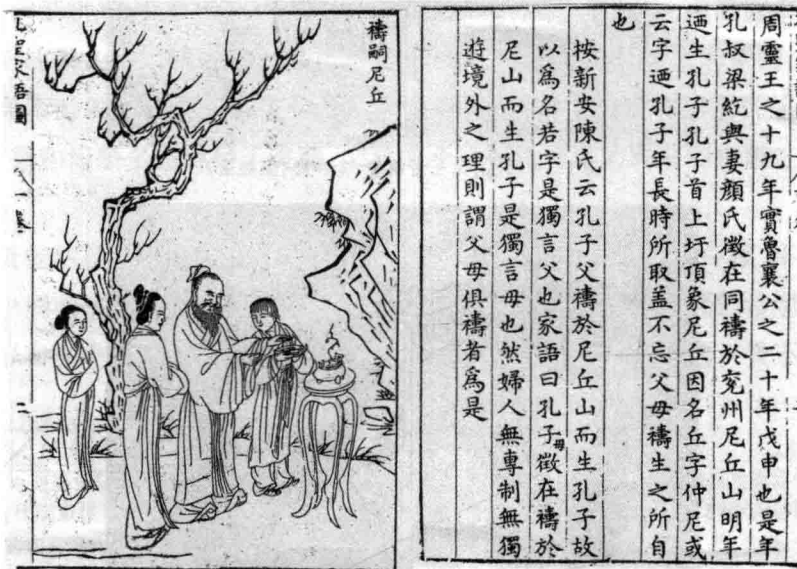 周靈王之十九年實魯襄公之二十年戊申也是年
孔叔梁紇與妻顏氏徵在同禱於兗州尼丘山明年
迺生孔子孔子首上圩頂象尼丘因名丘字仲尼或
云字迺孔子年長時所取盖不忘父母禱生之所自
也
按新安陳氏云孔子父禱於尼丘山而生孔子故
以爲名若字是獨言父也家語曰孔子母徵在禱於
尼山而生孔子是獨言母也然婦人無專制無獨
遊境外之理則謂父母俱禱者爲是
禱嗣尼丘
孔聖家語圖